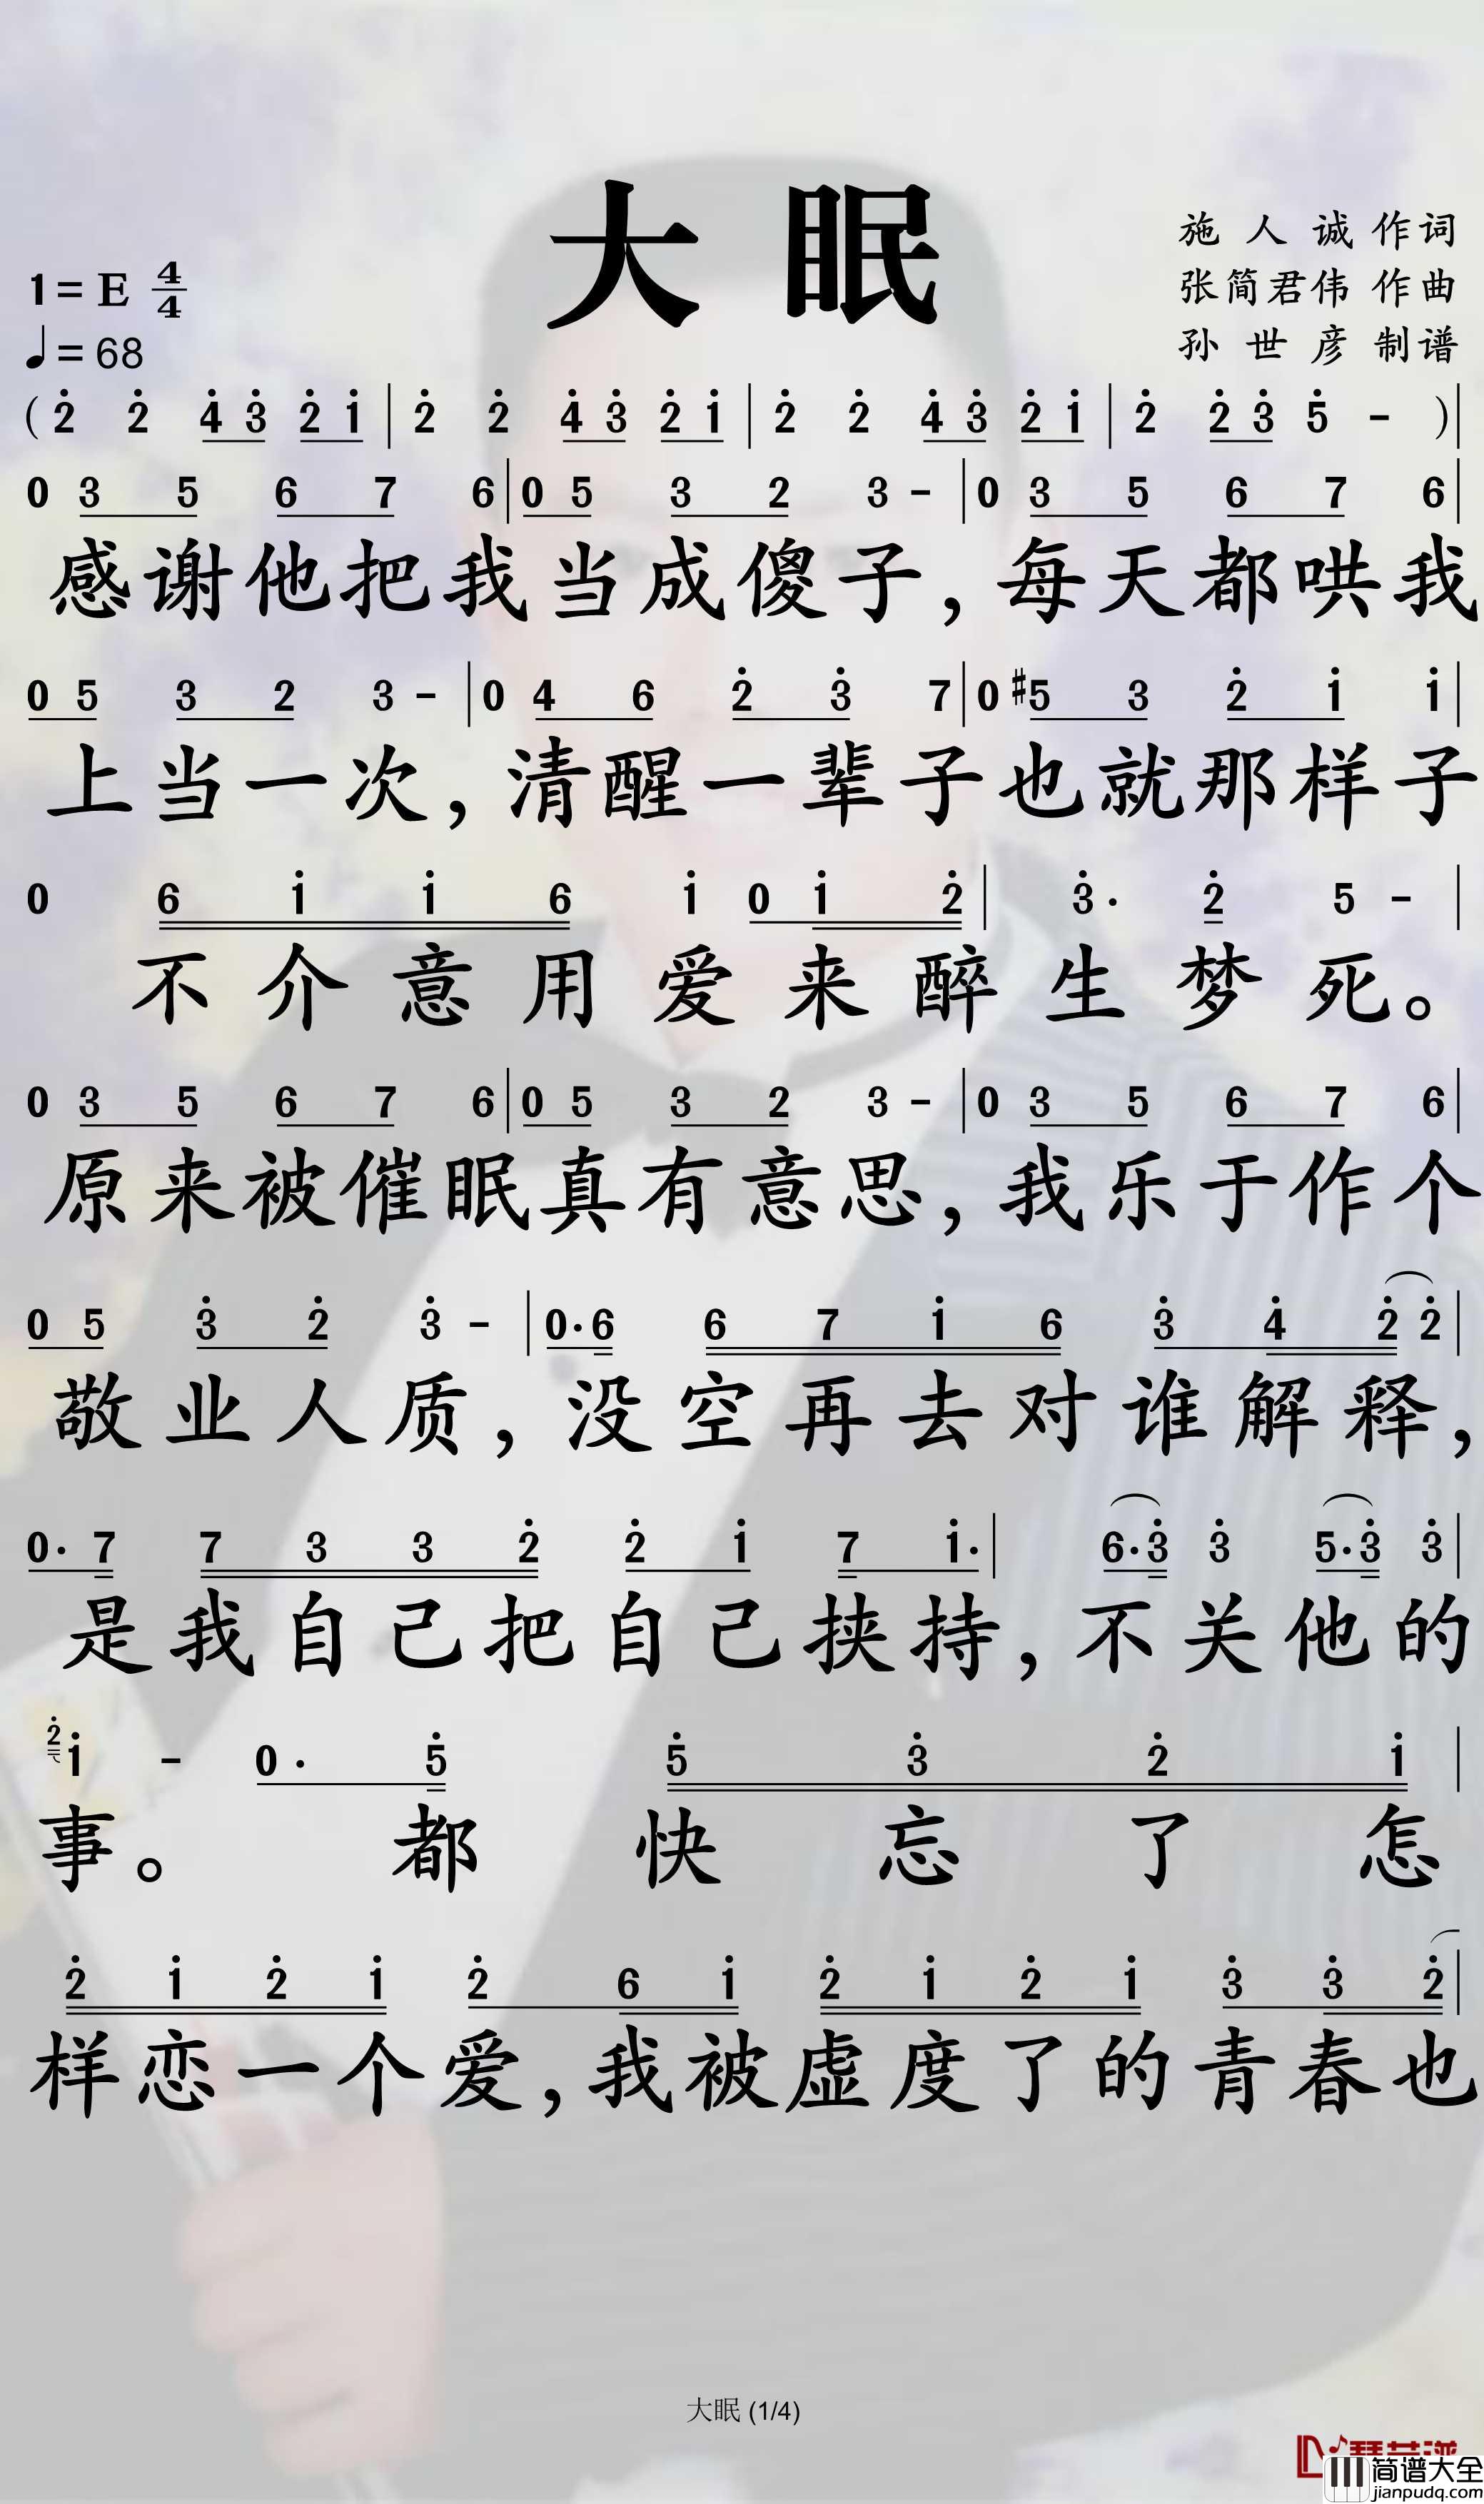 大眠
施人诚 作词
张简君伟 作曲
孙世彦 制谱
1=E 4/4
♩=68
(2 2 4 3 2 1 | 2 2 4 3 2 1 | 2 2 4 3 2 1 | 2 2 3 5 - )|
0 3 5 6 7 6 | 0 5 3 2 3 - | 0 3 5 6 7 6 |
感谢他把我当成傻子，每天都哄我
0 5 3 2 3 - | 0 4 6 2 3 7 | 0 #5 3 2 1 1 |
上当一次，清醒一辈子也就那样子
0 6 1 1 6 1 0 1 2 | 3· 2 5 - |
不介意用爱来醉生梦死。
0 3 5 6 7 6 | 0 5 3 2 3 - | 0 3 5 6 7 6 |
原来被催眠真有意思，我乐于作个
0 5 3 2 3 - | 0· 6 6 7 1 6 3 4 2 2 |
敬业人质，没空再去对谁解释，
0· 7 7 3 3 2 2 1 7 1· | 6· 3 3 5· 3 3 |
是我自己把自己挟持，不关他的
2 1 - 0· 5 5 3 2 1 |
事。都快忘了怎
2 1 2 1 2 6 1 2 1 2 1 3 3 2 |
样恋一个爱，我被虚度了的青春也
大眠 (1/4)
简谱大全
jianpudq.com